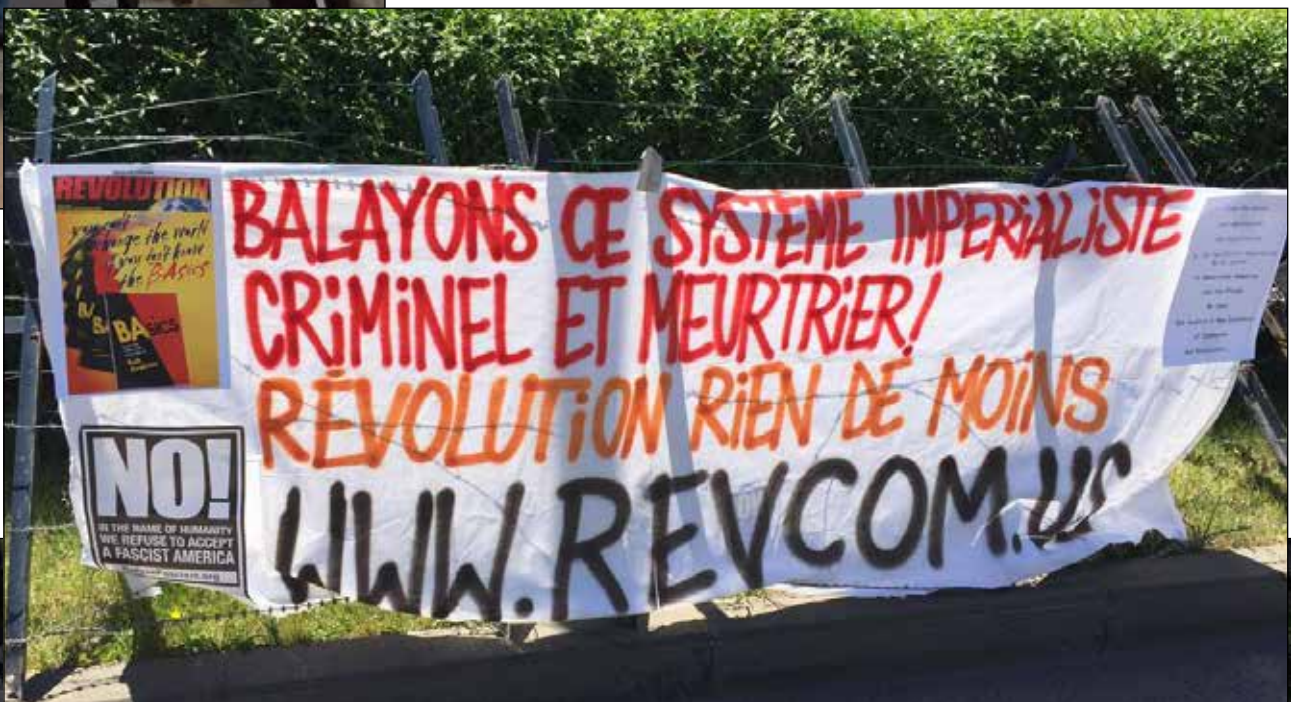 REVOLUTION
you can't
change the world
if you don't know
the BAsics
BA
BA
BAsics
BALAYONS CE SYSTÈME IMPERiALiSTE
CRiMiNEL ET MEURTRiER!
RÉVOLUTiON RiEN DE MOiNS
WWW.REVCOM.US
NO!
IN THE NAME OF HUMANITY
WE REFUSE TO ACCEPT
A FASCIST AMERICA